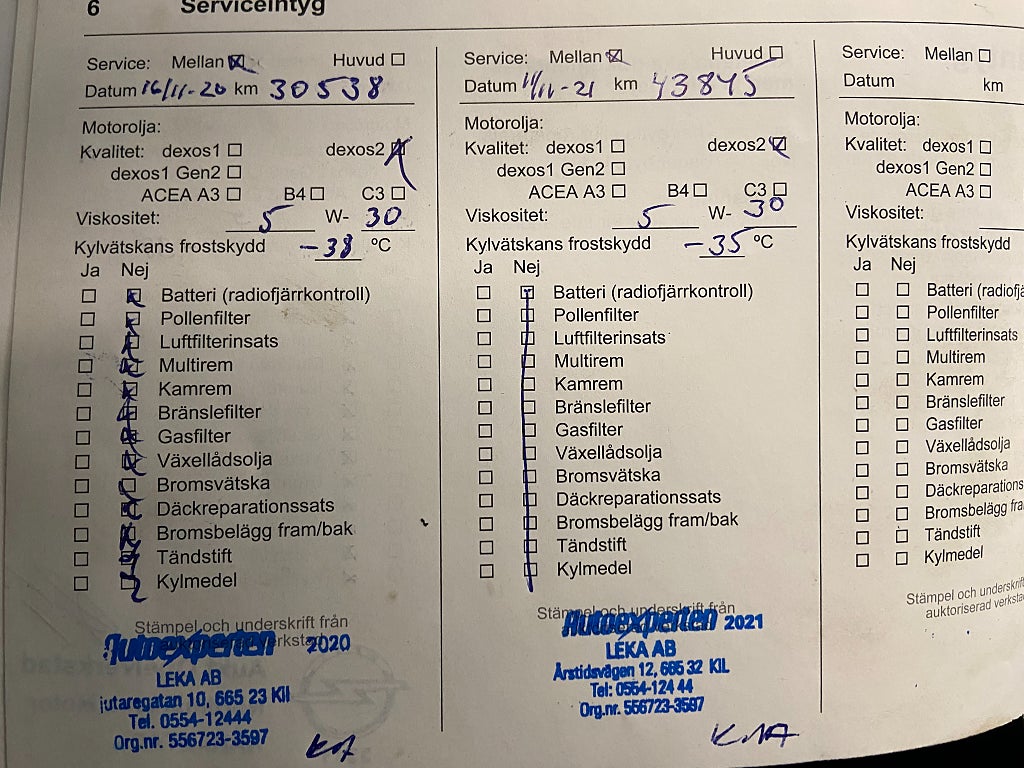 6 Serviceintyg
Service: Mellan Huvud
Datum 16/11-20 km 30538
Motorolja:
Kvalitet: dexos1 dexos2
dexos1 Gen2
ACEA A3 B4 C3
Viskositet: 5 W- 30
Kylvätskans frostskydd -38 °C
Ja Nej
Batteri (radiofjärrkontroll)
Pollenfilter
Luftfilterinsats
Multirem
Kamrem
Bränslefilter
Gasfilter
Växellådsolja
Bromsvätska
Däckreparationssats
Bromsbelägg fram/bak
Tändstift
Kylmedel
Stämpel och underskrift från
Autoexperten 2020
LEKA AB
jutaregatan 10, 665 23 Kil
Tel. 0554-12444
Org.nr. 556723-3597
Service: Mellan Huvud
Datum 11/11-21 km 43845
Motorolja:
Kvalitet: dexos1 dexos2
dexos1 Gen2
ACEA A3 B4 C3
Viskositet: 5 W- 30
Kylvätskans frostskydd -35 °C
Ja Nej
Batteri (radiofjärrkontroll)
Pollenfilter
Luftfilterinsats
Multirem
Kamrem
Bränslefilter
Gasfilter
Växellådsolja
Bromsvätska
Däckreparationssats
Bromsbelägg fram/bak
Tändstift
Kylmedel
Stämpel och underskrift från
Autoexperten 2021
LEKA AB
Årstidsvägen 12, 665 32 KIL
Tel: 0554-124 44
Org.nr. 556723-3597
Service: Mellan
Datum km
Motorolja:
Kvalitet: dexos1
dexos1 Gen2
ACEA A3
Viskositet:
Kylvätskans frostskydd
Ja Nej
Batteri (radiofjä
Pollenfilter
Luftfilterinsats
Multirem
Kamrem
Bränslefilter
Gasfilter
Växellådsolja
Bromsvätska
Däckreparations
Bromsbelägg fra
Tändstift
Kylmedel
Stämpel och underskrift
auktoriserad verksta